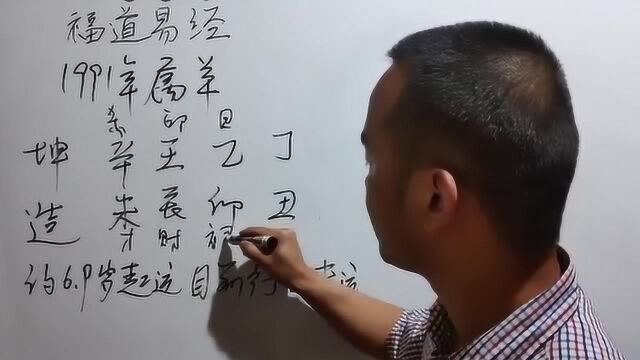 福道易经
1991年属羊
杀 印 日
坤 辛 壬 乙 丁
造 未 辰 卯 丑
才 财
约6.9岁起运 目前行